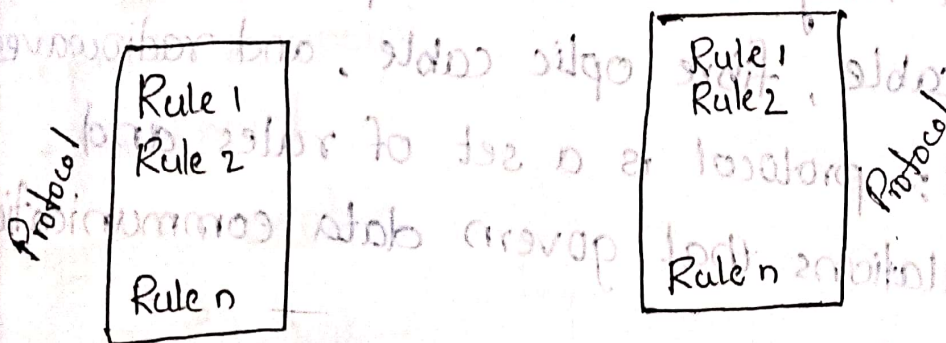 Protocol
Rule 1
Rule 2
Rule n
Rule 1
Rule 2
Rule n
Protocol